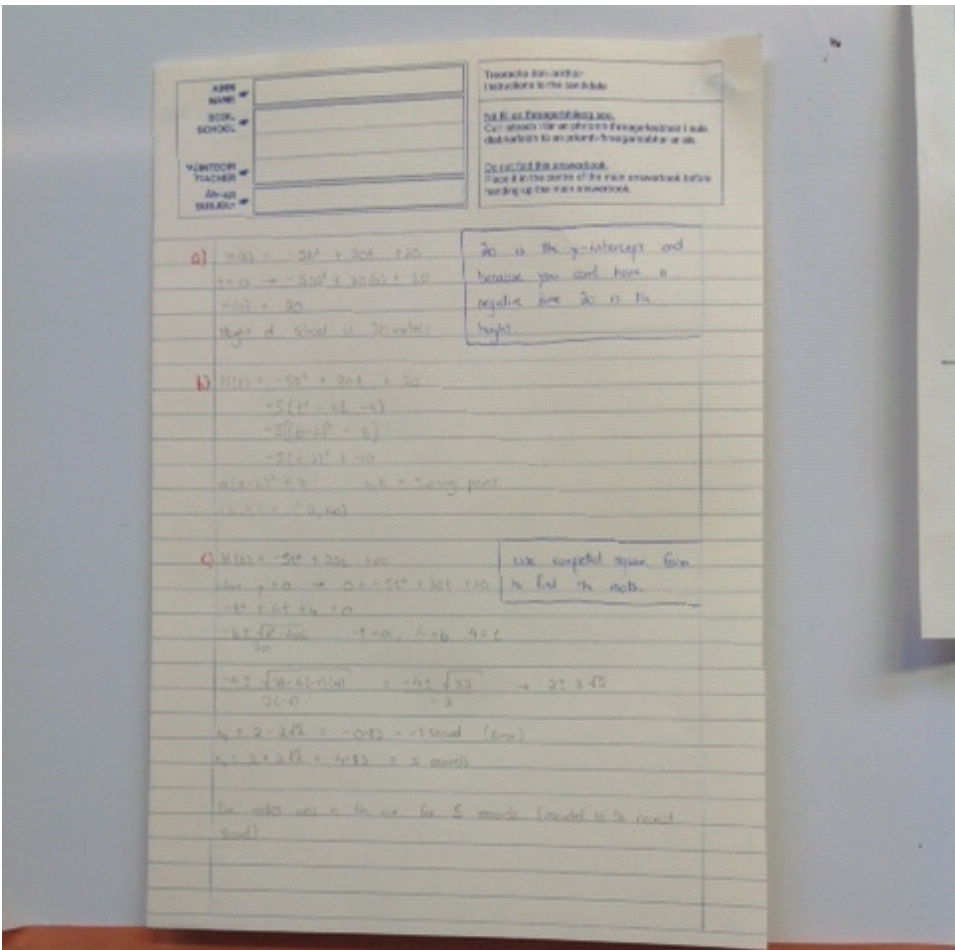 AINM
NAME
SCOIL
SCHOOL
MÚINTEOIR
TEACHER
ÁBHAR
SUBJECT
Treoracha don iarrthóir
Instructions to the candidate
Ná fill an freagarleabhar seo.
Cuir isteach i lár an phríomh-fhreagarleabhair é sula
Do not fold this answerbook.
Place it in the centre of the main answerbook before
handing up the main answerbook.
a) H(t) = -5t² + 20t + 20
t = 0 → -5(0)² + 20(0) + 20
= 20
Height of School is 20 metres
20 is the y-intercept and
because you cant have a
negative time 20 is the
height.
b) H(t) = -5t² + 20t + 20
-5(t² - 4t - 4)
-5[(t-2)² - 8]
-5(t-2)² + 40
= Turning point
(2, 40)
c) H(t) = -5t² + 20t + 20
y = 0 → 0 = -5t² + 20t + 20
-t² + 4t + 4 = 0
-b ± √b² - 4ac
2a
-1 = a, 4 = b 4 = c
2(-1)
= -4 ± √32
-2
→ 2 ± 2√2
use completed square form
to find the roots.
= 2 - 2√2 = -0.83 = -1 second (Error)
= 2 + 2√2 = 4.83 = 5 seconds
The was in the air for 5 seconds (rounded to the nearest
second)